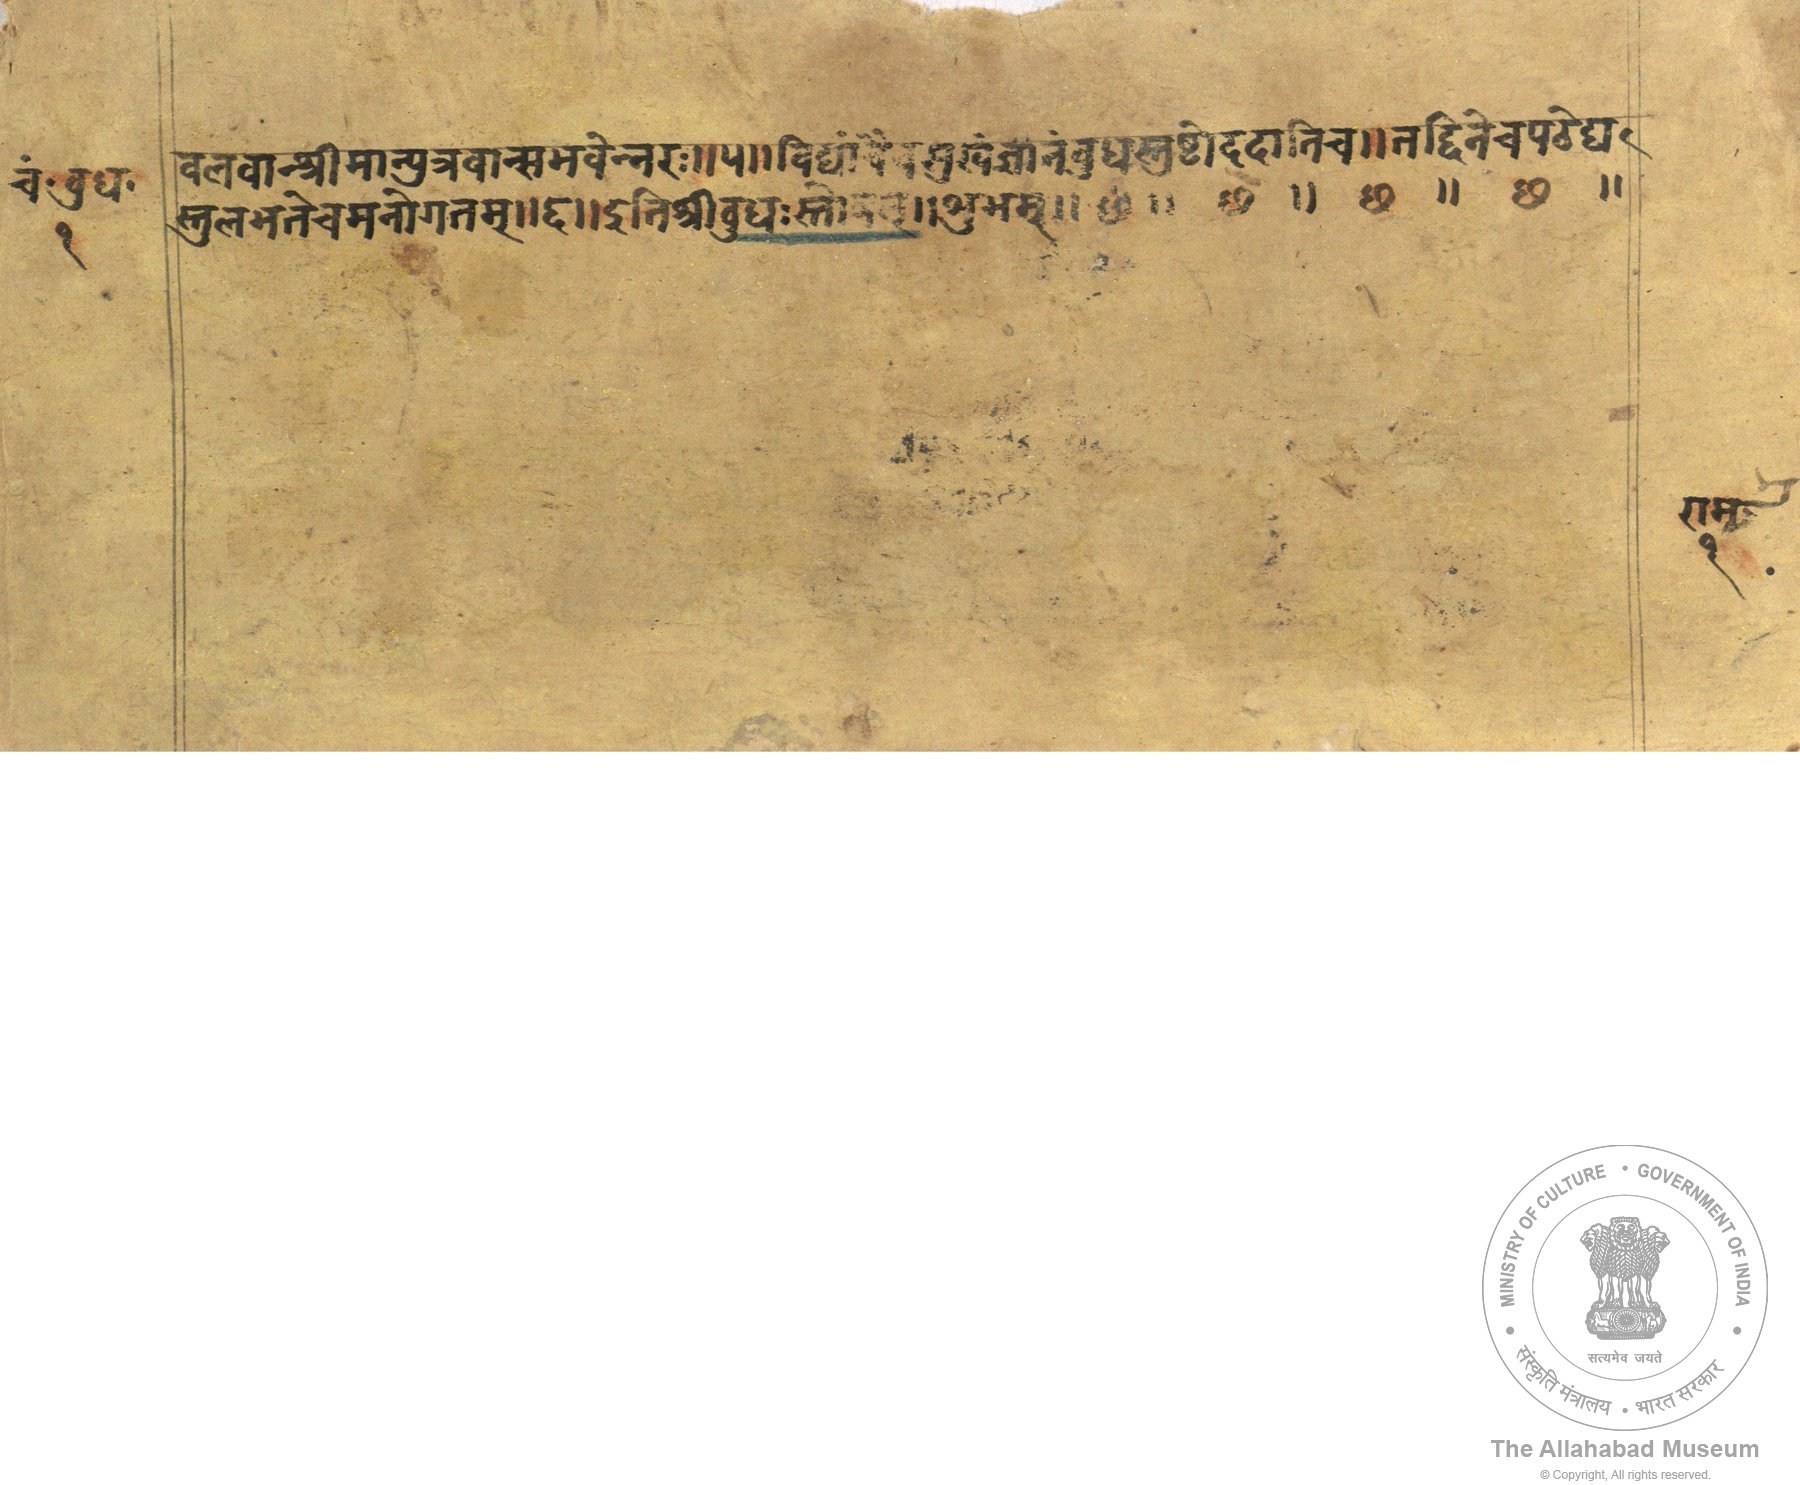 चं॰ वुध॰
१
वलवान्श्रीमान्पुत्रवान्सभवेन्नरः॥५॥विद्यां सुखंज्ञानंवुधस्तुष्टोददातिच॥तद्दिनेचपठेद्य
स्तुलभतेचमनोगतम्॥६॥इतिश्रीवुधःस्तो ॥शुभम्॥ छ ॥ छ ॥ छ ॥ छ ॥
राम
१
MINISTRY OF CULTURE • GOVERNMENT OF INDIA
सत्यमेव जयते
संस्कृति मंत्रालय • भारत सरकार
The Allahabad Museum
© Copyright, All rights reserved.